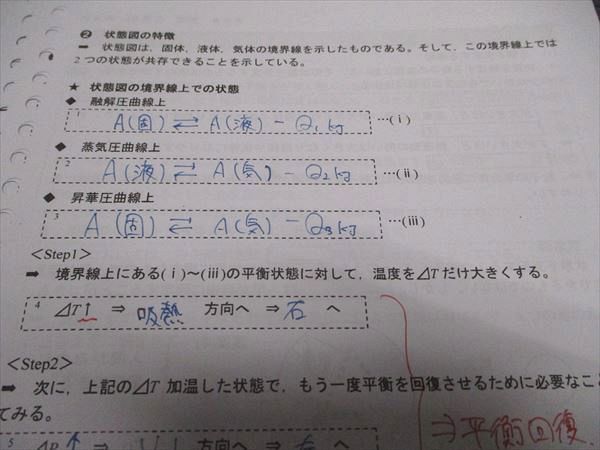 ❷ 状態図の特徴
➡ 状態図は，固体，液体，気体の境界線を示したものである。そして，この境界線上では
2つの状態が共存できることを示している。
★ 状態図の境界線上での状態
◆ 融解圧曲線上
1 A(固) ⇄ A(液) − Q₁ kJ …(ⅰ)
◆ 蒸気圧曲線上
2 A(液) ⇄ A(気) − Q₂ kJ …(ⅱ)
◆ 昇華圧曲線上
3 A(固) ⇄ A(気) − Q₃ kJ …(ⅲ)
<Step1>
➡ 境界線上にある(ⅰ)～(ⅲ)の平衡状態に対して，温度を⊿Tだけ大きくする。
4 ⊿T↑ ⇒ 吸熱 方向へ ⇒ 右 へ
<Step2>
➡ 次に，上記の⊿T 加温した状態で，もう一度平衡を回復させるために必要なこ
てみる。
⇒平衡回復
5 ⊿P↑ ⇒ 方向へ ⇒ へ